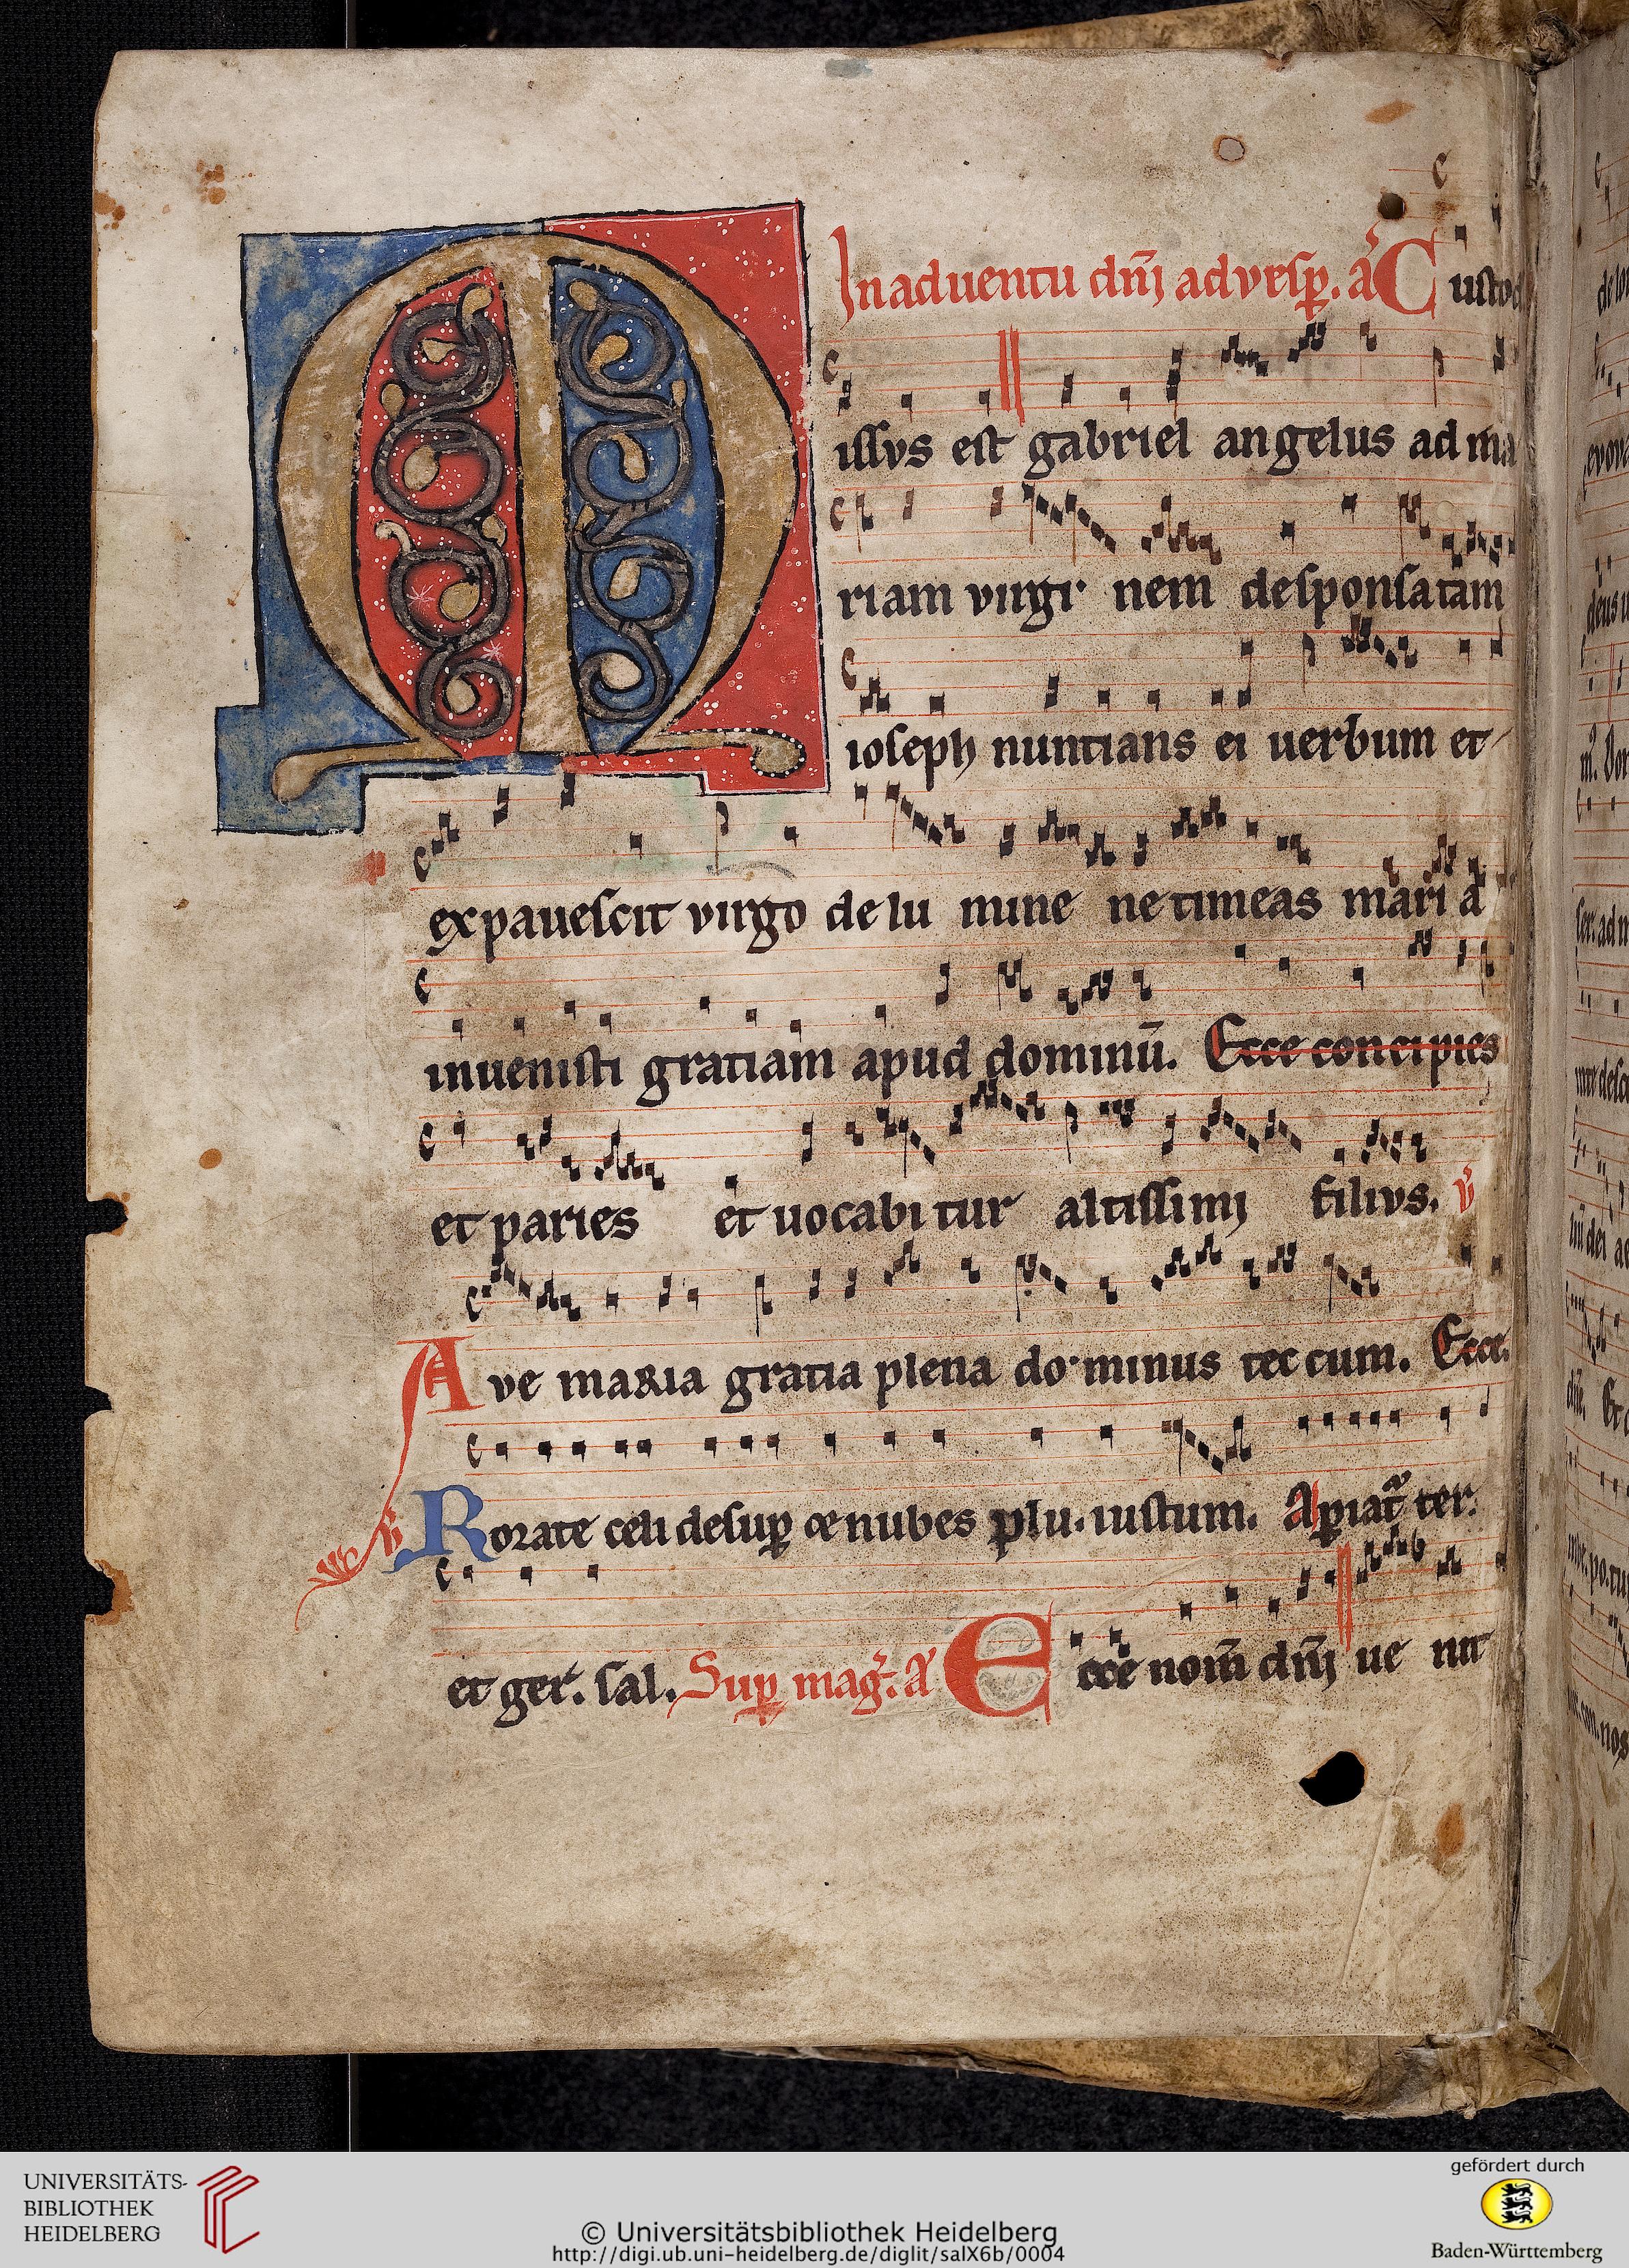 In aduentu dn̄j ad vesp̱. a᷑ Custod
Missvs est gabriel angelus ad ma
riam virgi nem desponsatam
ioseph nuntians ei uerbum et
expauescit virgo de lu mine ne timeas mari a
inuenisti gratiam apud dominū. Ecce concipies
et paries et uocabi tur altissimj filivs. v᷑
Ave maria gratia plena do minus tec cum. Ecce.
v᷑ Rorate celi desup̱ & nubes plu. iustum. Ap̱iat᷑ ter.
et ger. sal. Sup̱ mag᷑. a᷑ Ecce nom̄ dn̄j ue nit
UNIVERSITÄTS-
BIBLIOTHEK
HEIDELBERG
© Universitätsbibliothek Heidelberg
http://digi.ub.uni-heidelberg.de/diglit/salX6b/0004
gefördert durch
Baden-Württemberg